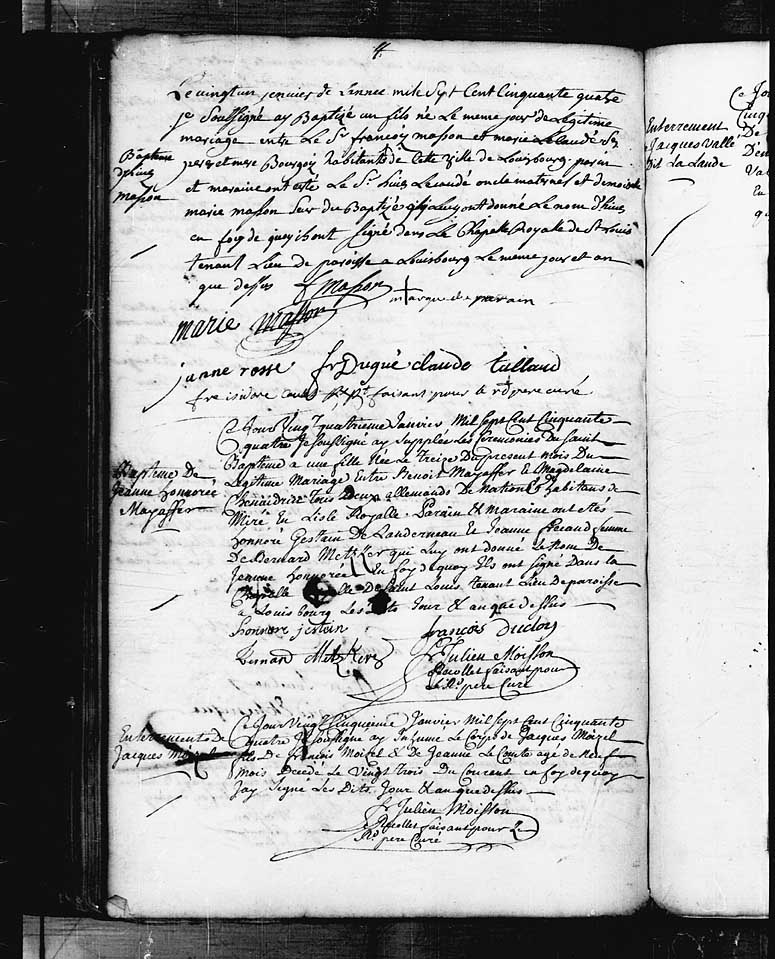 4
Le vingt un janvier de Lannee mile Sept Cent Cinquante quatre
je Soussigné ay Baptizé un fils né Le meme jour de Legitime
mariage entre Le Sr francois masson et marie Lecaudé Ses
pere et mere Bourgois habitants de Cette ville de Louisbourg parain
et maraine ont esté Le Sr Lecaudé oncle maternel et demoiselle
marie masson Sœur du Baptizé qui Luy ont donné Le nom
en foy de quoy ils ont Signé dans La Chapelle Royalle de St Louis
tenant Lieu de paroisse a Louisbourg Le meme jour et an
que dessus f masson
marque de parain
Bapteme
masson
marie masson
janne rosse fr Dugué claude tullaud
fr isidore faisant pour le rd pere curé
Ce Jour Vingt quatrieme Janvier Mil Sept Cent Cinquante
quatre Je Soussigne ay Supplee Les Ceremonies Du Saint
Bapteme a une fille Née Le Treize Du present mois Du
Legitime Mariage Entre Benoit Mayaffer & Magdelaine
tous Deux allemands de Nation habitans de
Miré En Lisle Royalle. Parain & Maraine ont étés
honnoré Gestain De Landerneau & Jeanne femme
De Bernard Metzker qui Luy ont donné Le Nom De
Jeanne honnorée En foy de quoy Ils ont Signé Dans la
Chapelle De Saint Louis, tenant Lieu De paroisse
a Louisbourg Les Jour & an que dessus
Bapteme De
Jeanne honnorée
Mayaffer
honnore jestain
francois Duclos
Bernard Metzker
fr Julien Moisson
Recollet faisant pour
Le Rd pere Curé
Ce Jour Vingt Cinquieme Janvier Mil Sept Cent Cinquante
quatre Je Soussigne ay Inhumé Le Corps de Jacques Moizel
fils De francois Moizel & De Jeanne Le Comte agé de Neuf
Mois Decedé Le Vingt trois Du Courant en foy de quoy
Jay Signé Les Dits Jour & an que dessus
Enterrement de
Jacques
fr Julien Moisson
Recollet faisant pour Le
Rd pere Curé
Enterrement
Jacques Vallé
Dit La Lande
Ce Jo
Cinq
De